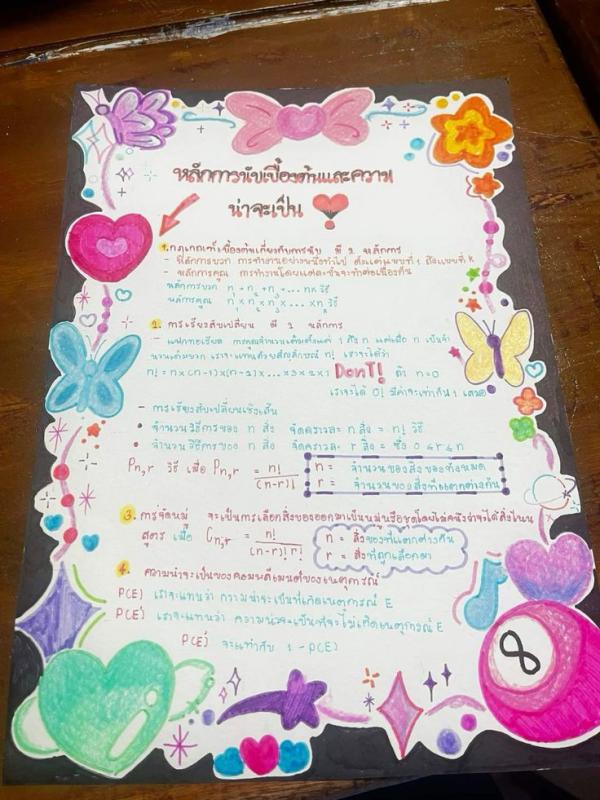 หลักการนับเบื้องต้นและความ
น่าจะเป็น
1. กฎเกณฑ์เบื้องต้นเกี่ยวกับการนับ มี 2 หลักการ
- หลักการบวก การทำงานอย่างหนึ่งทั่วไป ตั้งแต่แบบที่ 1 ถึงแบบที่ k
- หลักการคูณ การทำงานโดยแต่ละขั้นจะทำต่อเนื่องกัน
หลักการบวก n₁ + n₂ + n₃ + ... nk วิธี
หลักการคูณ n₁ x n₂ x n₃ x ... x nk วิธี
2. การเรียงสับเปลี่ยน มี 2 หลักการ
- แฟกทอเรียล การคูณจำนวนเต็มตั้งแต่ 1 ถึง n และเมื่อ n เป็นจำ
นวนเต็มบวก เราจะแทนด้วยสัญลักษณ์ n! เราจะได้ว่า
n! = n x (n-1) x (n-2) x ... x 3 x 2 x 1 DonT! ถ้า n = 0
เราจะได้ 0! มีค่าจะเท่ากับ 1 เสมอ
- การเรียงสับเปลี่ยนเชิงเส้น
• จำนวนวิธีการของ n สิ่ง จัดคราวละ n สิ่ง = n! วิธี
• จำนวนวิธีการของ n สิ่ง จัดคราวละ r สิ่ง = ซึ่ง 0 ≤ r ≤ n
Pn,r วิธี เมื่อ Pn,r = n!/(n-r)!
n = จำนวนของสิ่งของทั้งหมด
r = จำนวนของสิ่งที่แตกต่างกัน
3. การจัดหมู่ จะเป็นการเลือกสิ่งของออกมาเป็นหมู่หรือชุดโดยไม่คำนึงว่าจะได้สิ่งไหน
สูตร เมื่อ Cn,r = n!/(n-r)! r!
n = สิ่งของที่แตกต่างกัน
r = สิ่งที่ถูกเลือกมา
4. ความน่าจะเป็นของคอมพลีเมนต์ของเหตุการณ์
P(E) เราจะแทนว่า ความน่าจะเป็นที่เกิดเหตุการณ์ E
P(E') เราจะแทนว่า ความน่าจะเป็นที่จะไม่เกิดเหตุการณ์ E
P(E') จะเท่ากับ 1 - P(E)
8